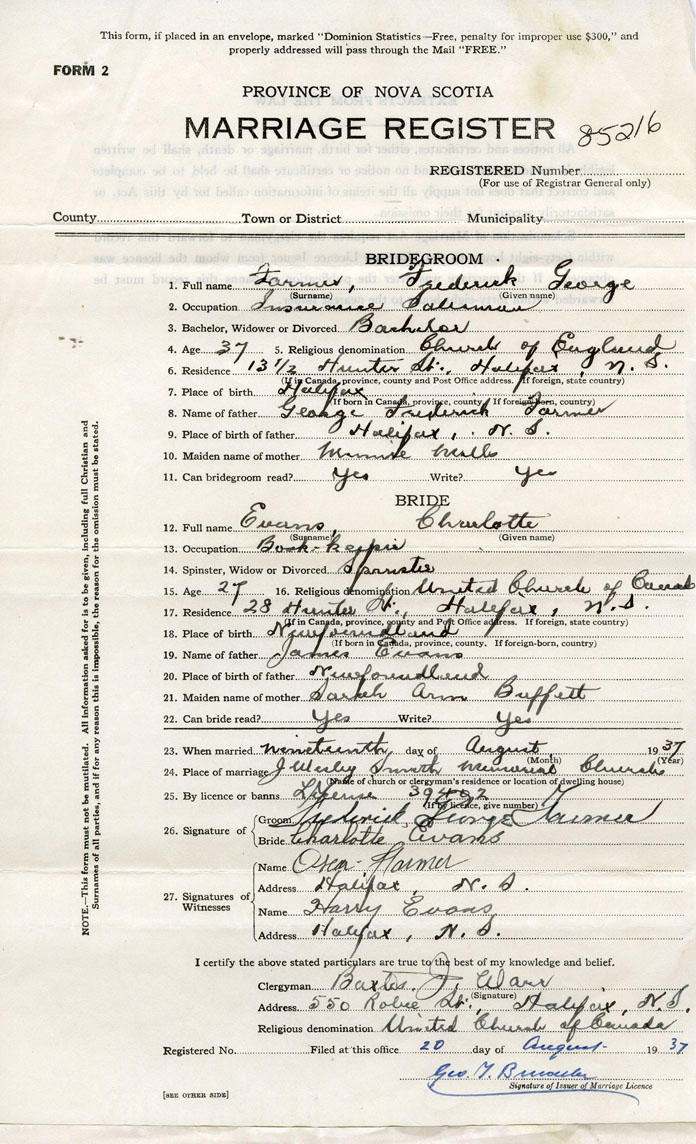 This form, if placed in an envelope, marked "Dominion Statistics—Free, penalty for improper use $300," and
properly addressed will pass through the Mail "FREE."
FORM 2
PROVINCE OF NOVA SCOTIA
MARRIAGE REGISTER 85216
REGISTERED Number
(For use of Registrar General only)
County Town or District Municipality
BRIDEGROOM
1. Full name Farmer, Frederick George
(Surname) (Given name)
2. Occupation Insurance Salesman
3. Bachelor, Widower or Divorced Bachelor
4. Age 37 5. Religious denomination Church of England
6. Residence 13 1/2 Hunter St., Halifax, N. S.
(If in Canada, province, county and Post Office address. If foreign, state country)
7. Place of birth Halifax
(If born in Canada, province, county. If foreign-born, country)
8. Name of father George Frederick Farmer
9. Place of birth of father Halifax, N. S.
10. Maiden name of mother Minnie Mills
11. Can bridegroom read? Yes Write? Yes
BRIDE
12. Full name Evans, Charlotte
(Surname) (Given name)
13. Occupation Book-keeper
14. Spinster, Widow or Divorced Spinster
15. Age 27 16. Religious denomination United Church of Canada
17. Residence 28 Hunter St., Halifax, N. S.
(If in Canada, province, county and Post Office address. If foreign, state country)
18. Place of birth Newfoundland
(If born in Canada, province, county. If foreign-born, country)
19. Name of father James Evans
20. Place of birth of father Newfoundland
21. Maiden name of mother Sarah Ann Buffett
22. Can bride read? Yes Write? Yes
23. When married nineteenth day of August 1937
(Month) (Year)
24. Place of marriage J Wesley Smith Memorial Church
(Name of church or clergyman's residence or location of dwelling house)
25. By licence or banns License 39402
(If by licence, give number)
26. Signature of
Groom Frederick George Farmer
Bride Charlotte Evans
27. Signatures of Witnesses
Name Oscar Farmer
Address Halifax, N. S.
Name Harry Evans
Address Halifax, N. S.
I certify the above stated particulars are true to the best of my knowledge and belief.
Clergyman Baxter J. Warr
(Signature)
Address 550 Robie St., Halifax, N. S.
Religious denomination United Church of Canada
Registered No. Filed at this office 20 day of August 1937
Geo. T.
Signature of Issuer of Marriage Licence
[SEE OTHER SIDE]
NOTE.—This form must not be mutilated. All information asked for is to be given, including full Christian and
Surnames of all parties, and if for any reason this is impossible, the reason for the omission must be stated.